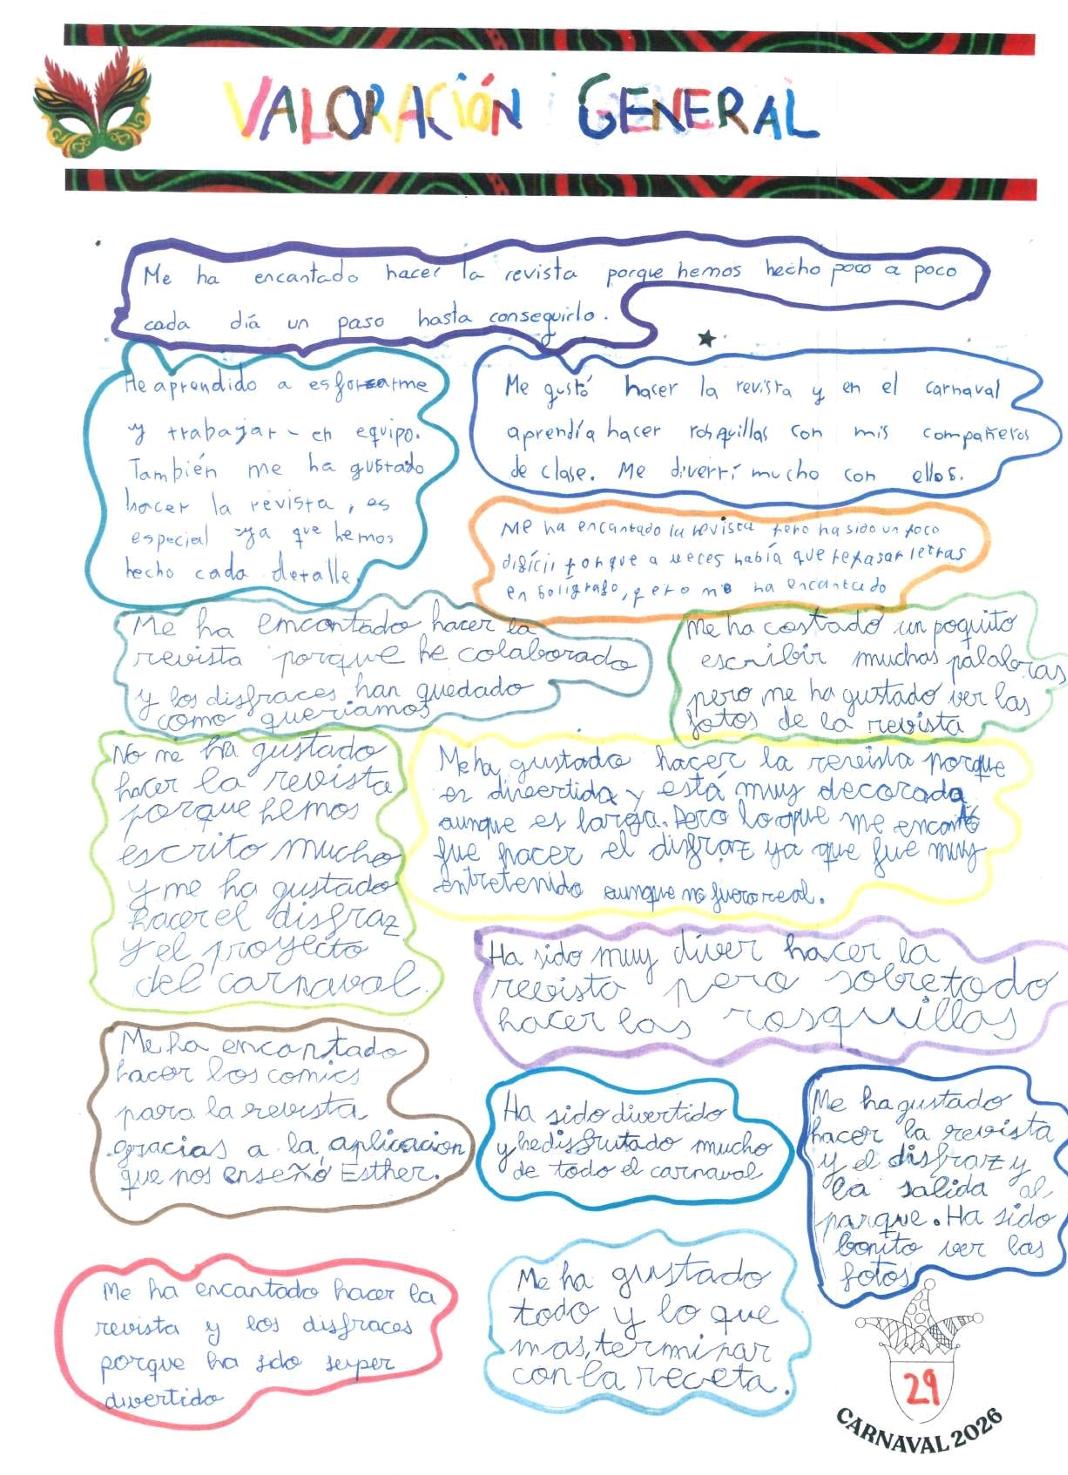 VALORACIÓN GENERAL
Me ha encantado hacer la revista porque hemos hecho poco a poco
cada día un paso hasta conseguirlo.
He aprendido a esforzarme
y trabajar - en equipo.
También me ha gustado
hacer la revista, es
especial ya que hemos
hecho cada detalle.
Me gustó hacer la revista y en el carnaval
aprendía hacer rosquillas con mis compañeros
de clase. Me diverrí mucho con ellos.
Me ha encantado la revista pero ha sido un poco
difícil porque a veces había que repasar letras
en bolígrafo, pero me ha encantado
Me ha encantado hacer la
revista porque he colaborado
y los disfraces han quedado
como queríamos
Me ha costado un poquito
escribir muchas palabras
pero me ha gustado ver las
fotos de la revista
No me ha gustado
hacer la revista
porque hemos
escrito mucho
y me ha gustado
hacer el disfraz
y el proyecto
del carnaval.
Me ha gustado hacer la revista porque
es divertida y está muy decorada
aunque es larga. Pero lo que me encantó
fue hacer el disfraz ya que fue muy
entretenido aunque no fuera real.
Ha sido muy diver hacer la
revista pero sobretodo
hacer las rosquillas
Me ha encantado
hacer los comics
para la revista
gracias a la aplicacion
que nos enseñó Esther.
Ha sido divertido
y he disfrutado mucho
de todo el carnaval
Me ha gustado
hacer la revista
y el disfraz y
la salida al
parque. Ha sido
bonito ver las
fotos
Me ha encantado hacer la
revista y los disfraces
porque ha sido super
divertido
Me ha gustado
todo y lo que
mas, terminar
con la receta.
29
CARNAVAL 2026